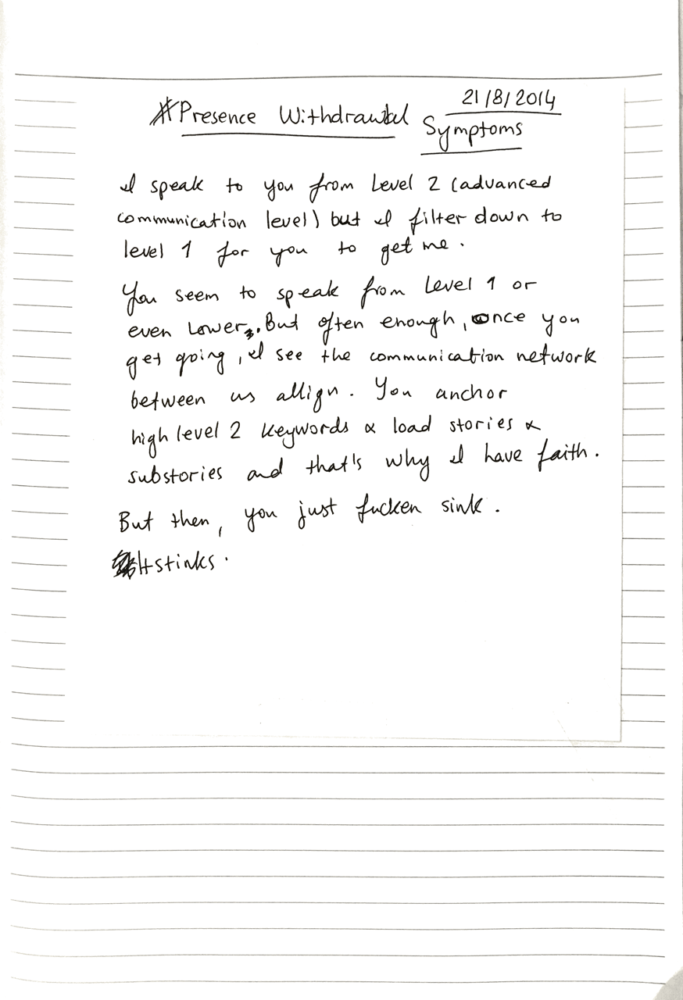 21/8/2014
#Presence Withdrawal Symptoms
I speak to you from Level 2 (advanced
communication level) but I filter down to
level 1 for you to get me.
You seem to speak from Level 1 or
even Lower. But often enough, once you
get going, I see the communication network
between us allign. You anchor
high level 2 keywords & load stories &
substories and that's why I have faith.
But then, you just fucken sink.
It stinks.